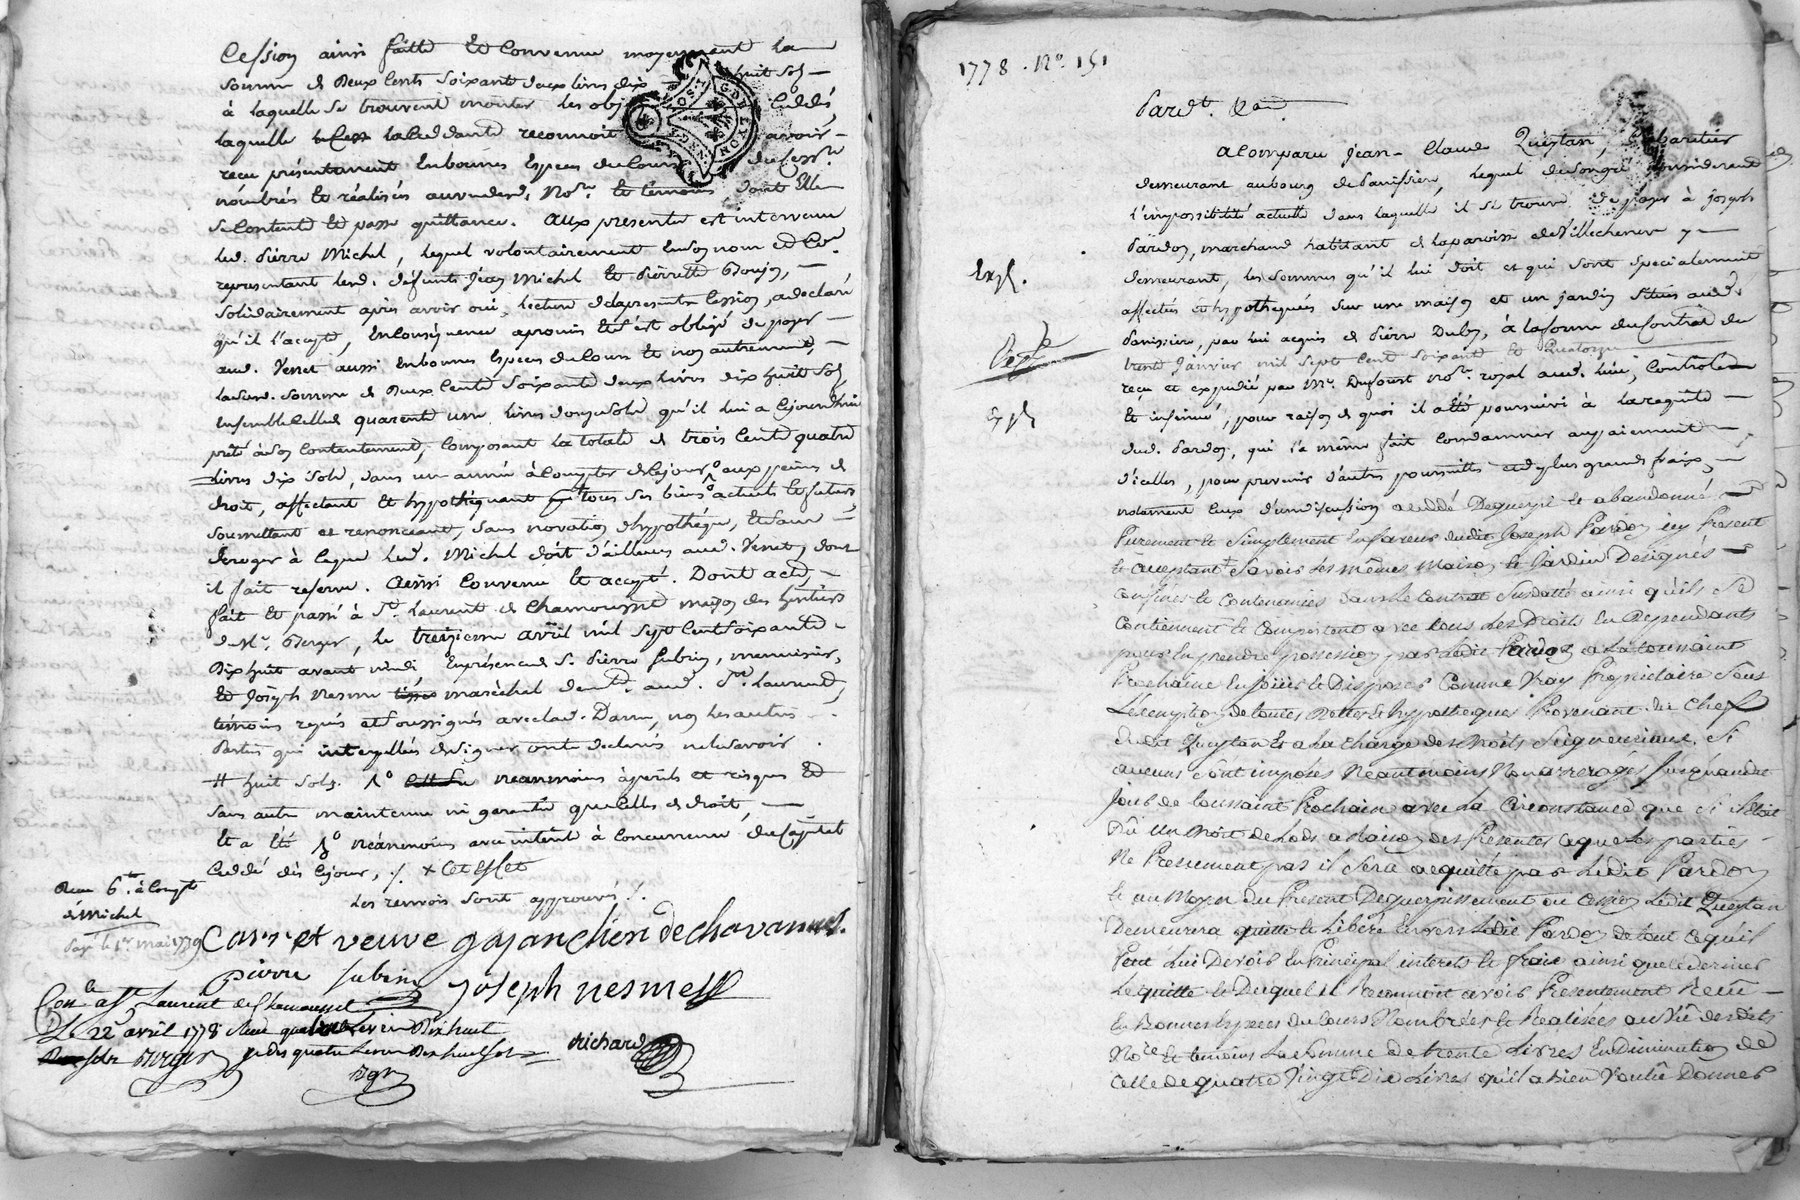 Cession ainsi faitte et Convenue moyennant la
somme de Deux Cents soixante deux livres dix huit sols
à laquelle se trouvent monter les obj Ceddés,
laquelle la Ceddante reconnoit avoir
reçu présentement en bonnes Especes du Cours du Cessre
nombrés et réalisés au vu desd. Nore et témoins dont Elle
se Contente et passe quittance. Aux presentes est intervenu
led. Pierre Michel, lequel volontairement en son nom et Co
representant lesd. défunts Jean Michel et Pierrette Boujon,
solidairement après avoir oui, lecture de la presente Cession, a declaré
qu'il l'accepte, En Conséquence a promis et s'est obligé de payer
aud. Venet aussi en bonnes Especes du Cours et non autrement,
lad. somme de Deux Cents soixante deux livres dix huit sols,
ensemble Celle de quarente une livres onze sols qu'il lui a Cejourd'hui
prêté à son Contentement, Composant la totale de trois Cents quatre
livres dix sols, dans un année à Compter de Ce jour aux peines de
droit, affectant et hypothéquant tous ses biens actuels et futurs,
soumettant et renonceant, sans novation d'hypothéque, et sans
deroger à Ce que led. Michel doit d'ailleurs aud. Venet, dont
il fait reserve. Ainsi Convenu et accepté. Dont acte,
fait et passé à St. Laurent de Chamousset maison des heritiers
de Mr. Berger, le treizieme avril mil sept Cent soixante
Dix huit avant midi, En présence de Sr. Pierre Subrin, menuisier,
et Joseph Nesme maréchal demt. aud. St. Laurent,
témoins requis et soussignés avec lad. Dame, non les autres
Parties qui interpellées de signer ont declarés ne le savoir.
# huit sols. 1° neanmoins à perils et risques et
sans autre maintenue ni garentie que Celles de droit,
et a été neanmoins avec interet à Concurrence, du Capital
Ceddé dès Ce jour, /. x Cet Effet
les renvois sont approuvés /.
Reçu 6 à Compte
de Michel
Payé le 1er mai 1779
Carret veuve gojanchieri de chavannes.
pierre subrin joseph nesme
Con. à St. Laurent de Chamousset
Le 22 avril 1778
Berger
Richard
1778. No. 151
Pardt. Qan
a Comparu Jean-Claude Queytan, Charetier
demeurant au bourg de Panissiere, lequel de son gré Considerant
l'impossibilité actuelle dans laquelle il se trouve de payer à Joseph
Pardon, marchand habitant de la paroisse de Villechenève y
demeurant, les sommes qu'il lui doit et qui sont specialement
Exp.
affectées et hypothequées sur une maison et un jardin situés aud.
Panissiere, par lui acquis de Pierre Dubon, à la forme du Contrat du
Exp
trente Janvier mil sept Cent soixante et Quatorze
reçu et expedié par Me. Dufourt Nore. royal aud. lieu, Controlé
et insinué, pour raison de quoi il a été poursuivi à la requête
Exp
dud. Pardon, qui l'a même fait Condamner au paiement
d'icelles, pour prevenir d'autres poursuittes et de plus grands fraix,
notament Ceux d'une discussion a ceddé Deguerpit et abandonné
Purement et Simplement En faveur dudit Joseph Pardon icy Present
et acceptant Savoir Les mêmes Maison et Jardin Designés
Confinés et Contenanciés Dans le Contrat Susdatté ainsi qu'ils se
Contiennent et Comportent avec tous Les Droits En Dependants
pour En prendre possession par Ledit Pardon a La toussaint
Prochaine En Joüir et Disposer Comme Vray Proprietaire Sous
L'exemption de toutes Dettes et hypotheques Provenant du Chef
dudit Queytan Et a La Charge des Droits Seigneuriaux. Si
aucuns sont imposés Neantmoins Non arrerages Jusqu'audit
Jour de toussaint Prochain avec La Circonstance que Si il Etoit
Dû Un Droit de Lods a Raison des Presentes a que Les parties
Ne Pressement pas il Sera acquitté par Ledit Pardon
Et au Moyen du Present Deguerpissement ou Cession Ledit Queytan
Demeurera quitte et Libéré Envers Ledit Pardon de tout Ce qu'il
Peut Lui Devoir En Principal interets et fraix ainsi que Ce dernier
Le quitte et Duquel Il Reconnoit avoir Presentement Reçû
En Bonnes Especes du Cours Nombrées et Realisées au Vû desdits
Nore Et temoins La Somme de trente Livres En Diminution de
Celle de quatre Vingt Dix Livres qu'il a bien Voulû Donner